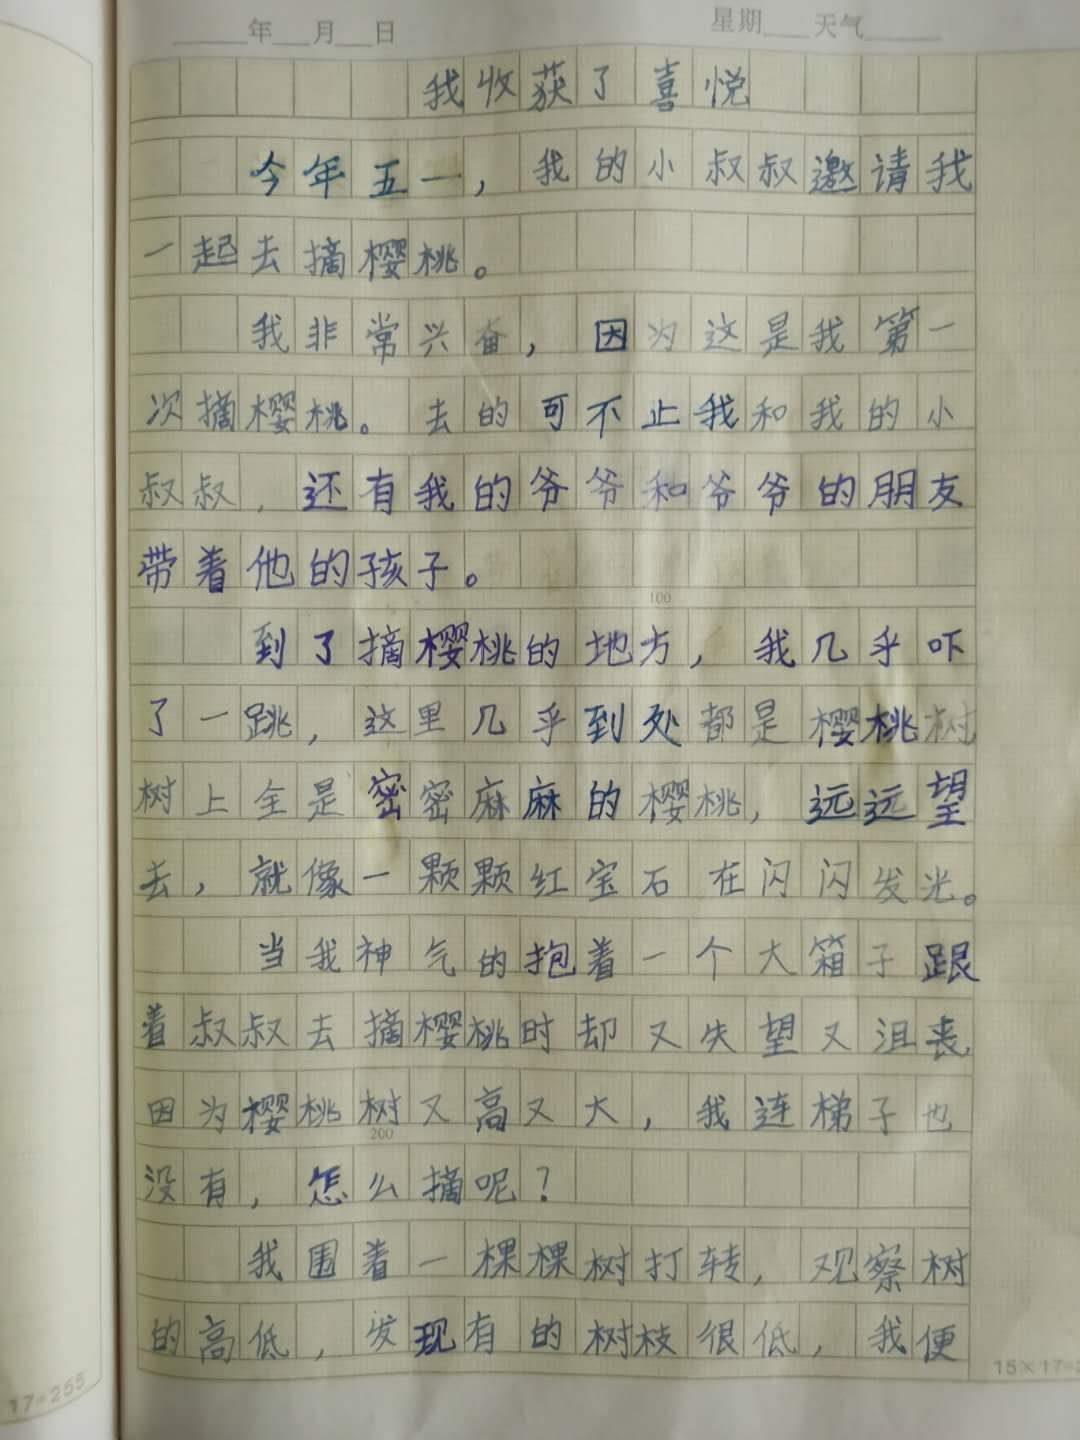 年 月 日 星期 天气
我收获了喜悦
今年五一，我的小叔叔邀请我
一起去摘樱桃。
我非常兴奋，因为这是我第一
次摘樱桃。去的可不止我和我的小
叔叔，还有我的爷爷和爷爷的朋友
带着他的孩子。
100
到了摘樱桃的地方，我几乎吓
了一跳，这里几乎到处都是樱桃树
树上全是密密麻麻的樱桃，远远望
去，就像一颗颗红宝石在闪闪发光。
当我神气的抱着一个大箱子跟
着叔叔去摘樱桃时却又失望又沮丧，
因为樱桃树又高又大，我连梯子也
200
没有，怎么摘呢？
我围着一棵棵树打转，观察树
的高低，发现有的树枝很低，我便
17=255
15×17=2